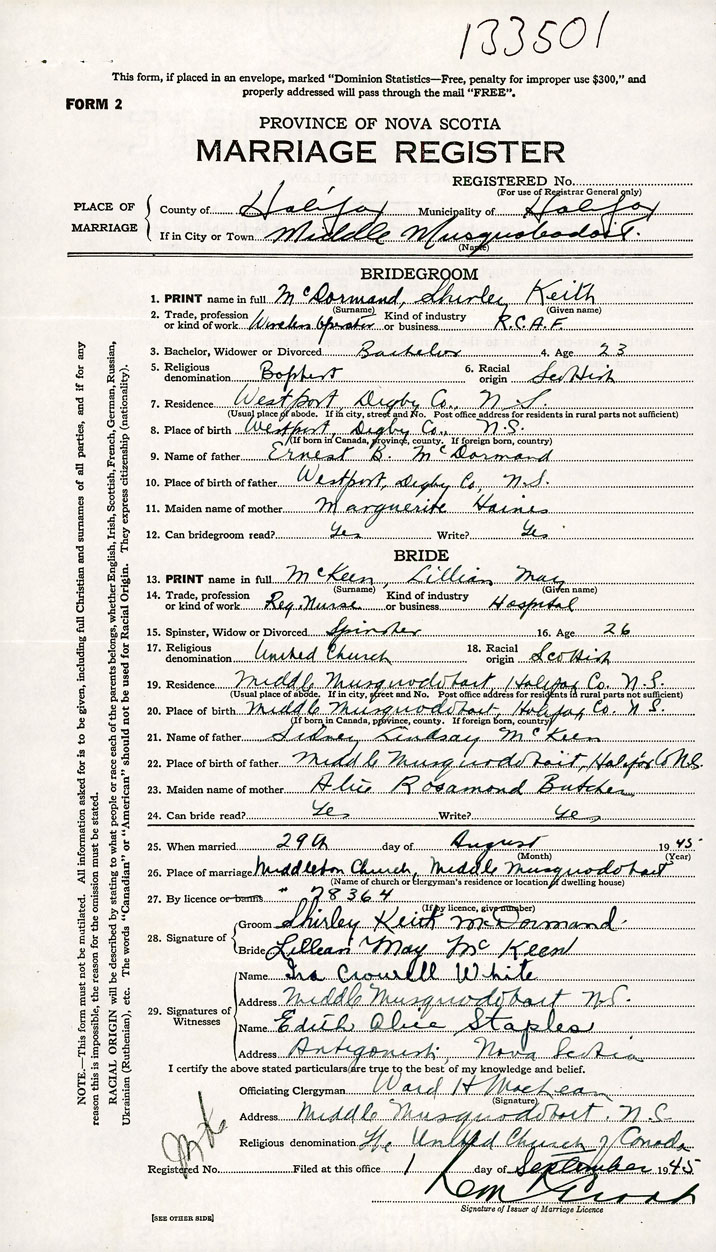 133501
This form, if placed in an envelope, marked "Dominion Statistics—Free, penalty for improper use $300," and
properly addressed will pass through the mail "FREE".
FORM 2
PROVINCE OF NOVA SCOTIA
MARRIAGE REGISTER
REGISTERED No.
(For use of Registrar General only)
PLACE OF MARRIAGE
County of Halifax Municipality of Halifax
If in City or Town Middle Musquodoboit.
(Name)
BRIDEGROOM
1. PRINT name in full McDormand, Shirley Keith
(Surname) (Given name)
2. Trade, profession or kind of work Wireless Operator Kind of industry or business R.C.A.F.
3. Bachelor, Widower or Divorced Bachelor 4. Age 23
5. Religious denomination Baptist 6. Racial origin Scottish
7. Residence Westport Digby Co., N.S.
(Usual place of abode. If in city, street and No. Post office address for residents in rural parts not sufficient)
8. Place of birth Westport, Digby Co., N.S.
(If born in Canada, province, county. If foreign born, country)
9. Name of father Ernest B. McDormand
10. Place of birth of father Westport, Digby Co., N.S.
11. Maiden name of mother Marguerite Haines
12. Can bridegroom read? Yes Write? Yes
BRIDE
13. PRINT name in full McKeen, Lillian May
(Surname) (Given name)
14. Trade, profession or kind of work Reg. Nurse Kind of industry or business Hospital
15. Spinster, Widow or Divorced Spinster 16. Age 26
17. Religious denomination United Church 18. Racial origin Scottish
19. Residence Middle Musquodoboit, Halifax Co. N.S.
(Usual place of abode. If in city, street and No. Post office address for residents in rural parts not sufficient)
20. Place of birth Middle Musquodoboit, Halifax Co. N.S.
(If born in Canada, province, county. If foreign born, country)
21. Name of father Sidney Lindsay McKeen
22. Place of birth of father Middle Musquodoboit, Halifax Co N.S.
23. Maiden name of mother Alice Rosamond Butcher
24. Can bride read? Yes Write? Yes
25. When married 29th day of August 1945
(Month) (Year)
26. Place of marriage Middleton Church, Middle Musquodoboit
(Name of church or clergyman's residence or location of dwelling house)
27. By licence or banns " 78364
(If by licence, give number)
28. Signature of
Groom Shirley Keith McDormand.
Bride Lillian May McKeen
29. Signatures of Witnesses
Name Ira Crowell White
Address Middle Musquodoboit N.S.
Name Edith Alice Staples
Address Antigonish, Nova Scotia
I certify the above stated particulars are true to the best of my knowledge and belief.
Officiating Clergyman Ward H MacLean
(Signature)
Address Middle Musquodoboit. N.S.
Religious denomination The United Church of Canada
Registered No. Filed at this office 1 day of September 1945
Signature of Issuer of Marriage Licence
[SEE OTHER SIDE]
NOTE.—This form must not be mutilated. All information asked for is to be given, including full Christian and surnames of all parties, and if for any
reason this is impossible, the reason for the omission must be stated.
RACIAL ORIGIN will be described by stating to what people or race each of the parents belongs, whether English, Irish, Scottish, French, German, Russian,
Ukrainian (Ruthenian), etc. The words "Canadian" or "American" should not be used for Racial Origin. They express citizenship (nationality).